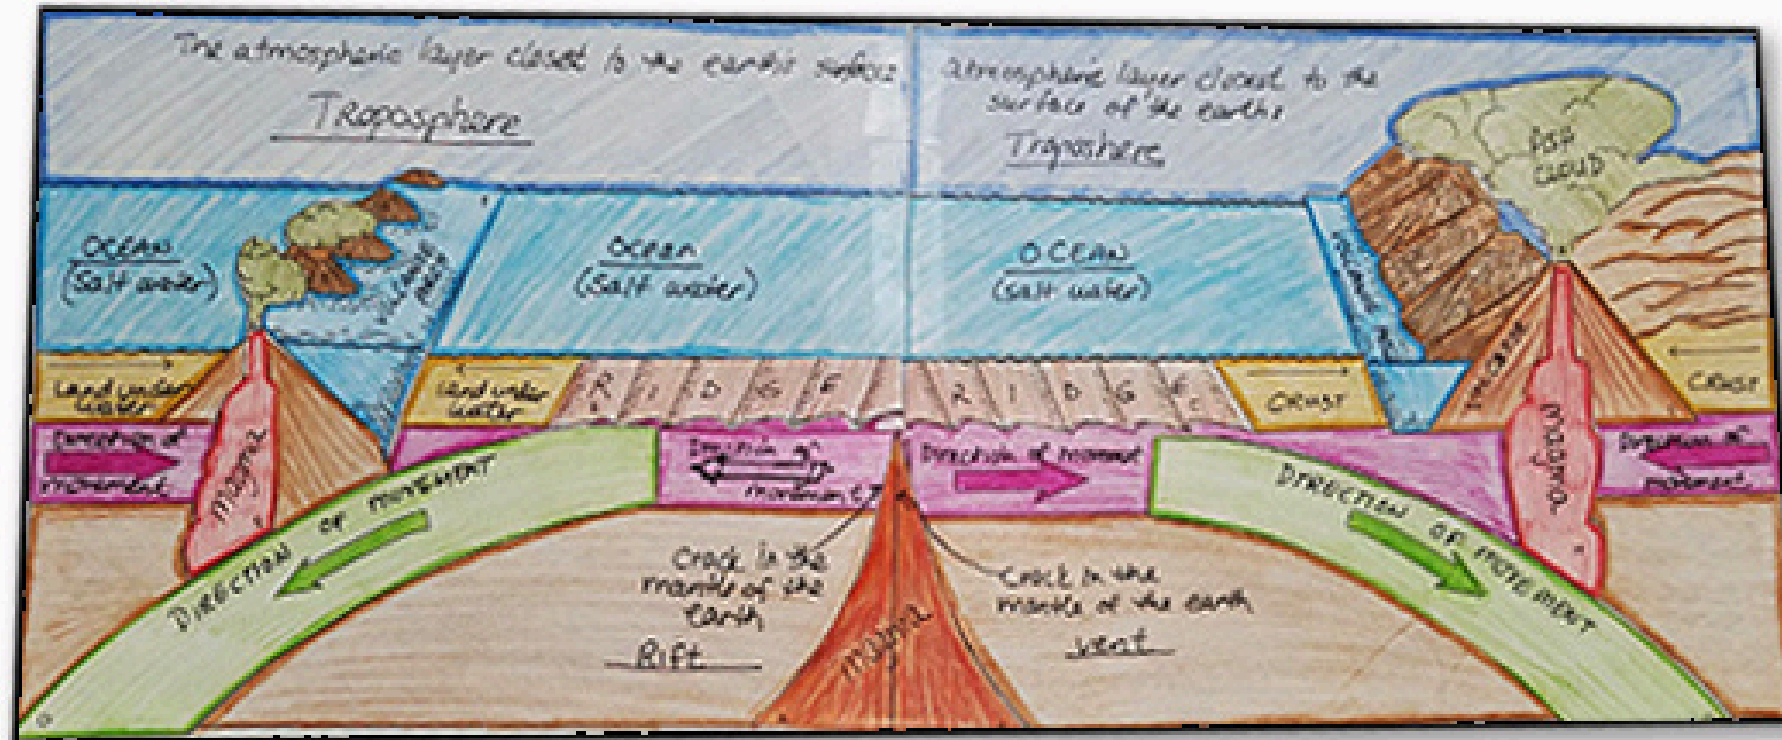 The atmospheric layer closet to the earth's surface
Troposphere
atmospheric layer closet to the
surface of the earths
Troposhere
ASH
CLOUD
OCEAN
(Salt water)
VOLCANIC
OCEAN
(Salt water)
OCEAN
(salt water)
VOLCANIC
Land under
water
land under
water
R I D G E
R I D G E
CRUST
CRUST
Direction of
movement
magma
DIRECTION OF MOVEMENT
Direction of
Direction of
DIRECTION OF MOVEMENT
magma
Direction of
movement
Crack in the
mantle of the
earth
Rift
magma
Crack in the
mantle of the earth
vent